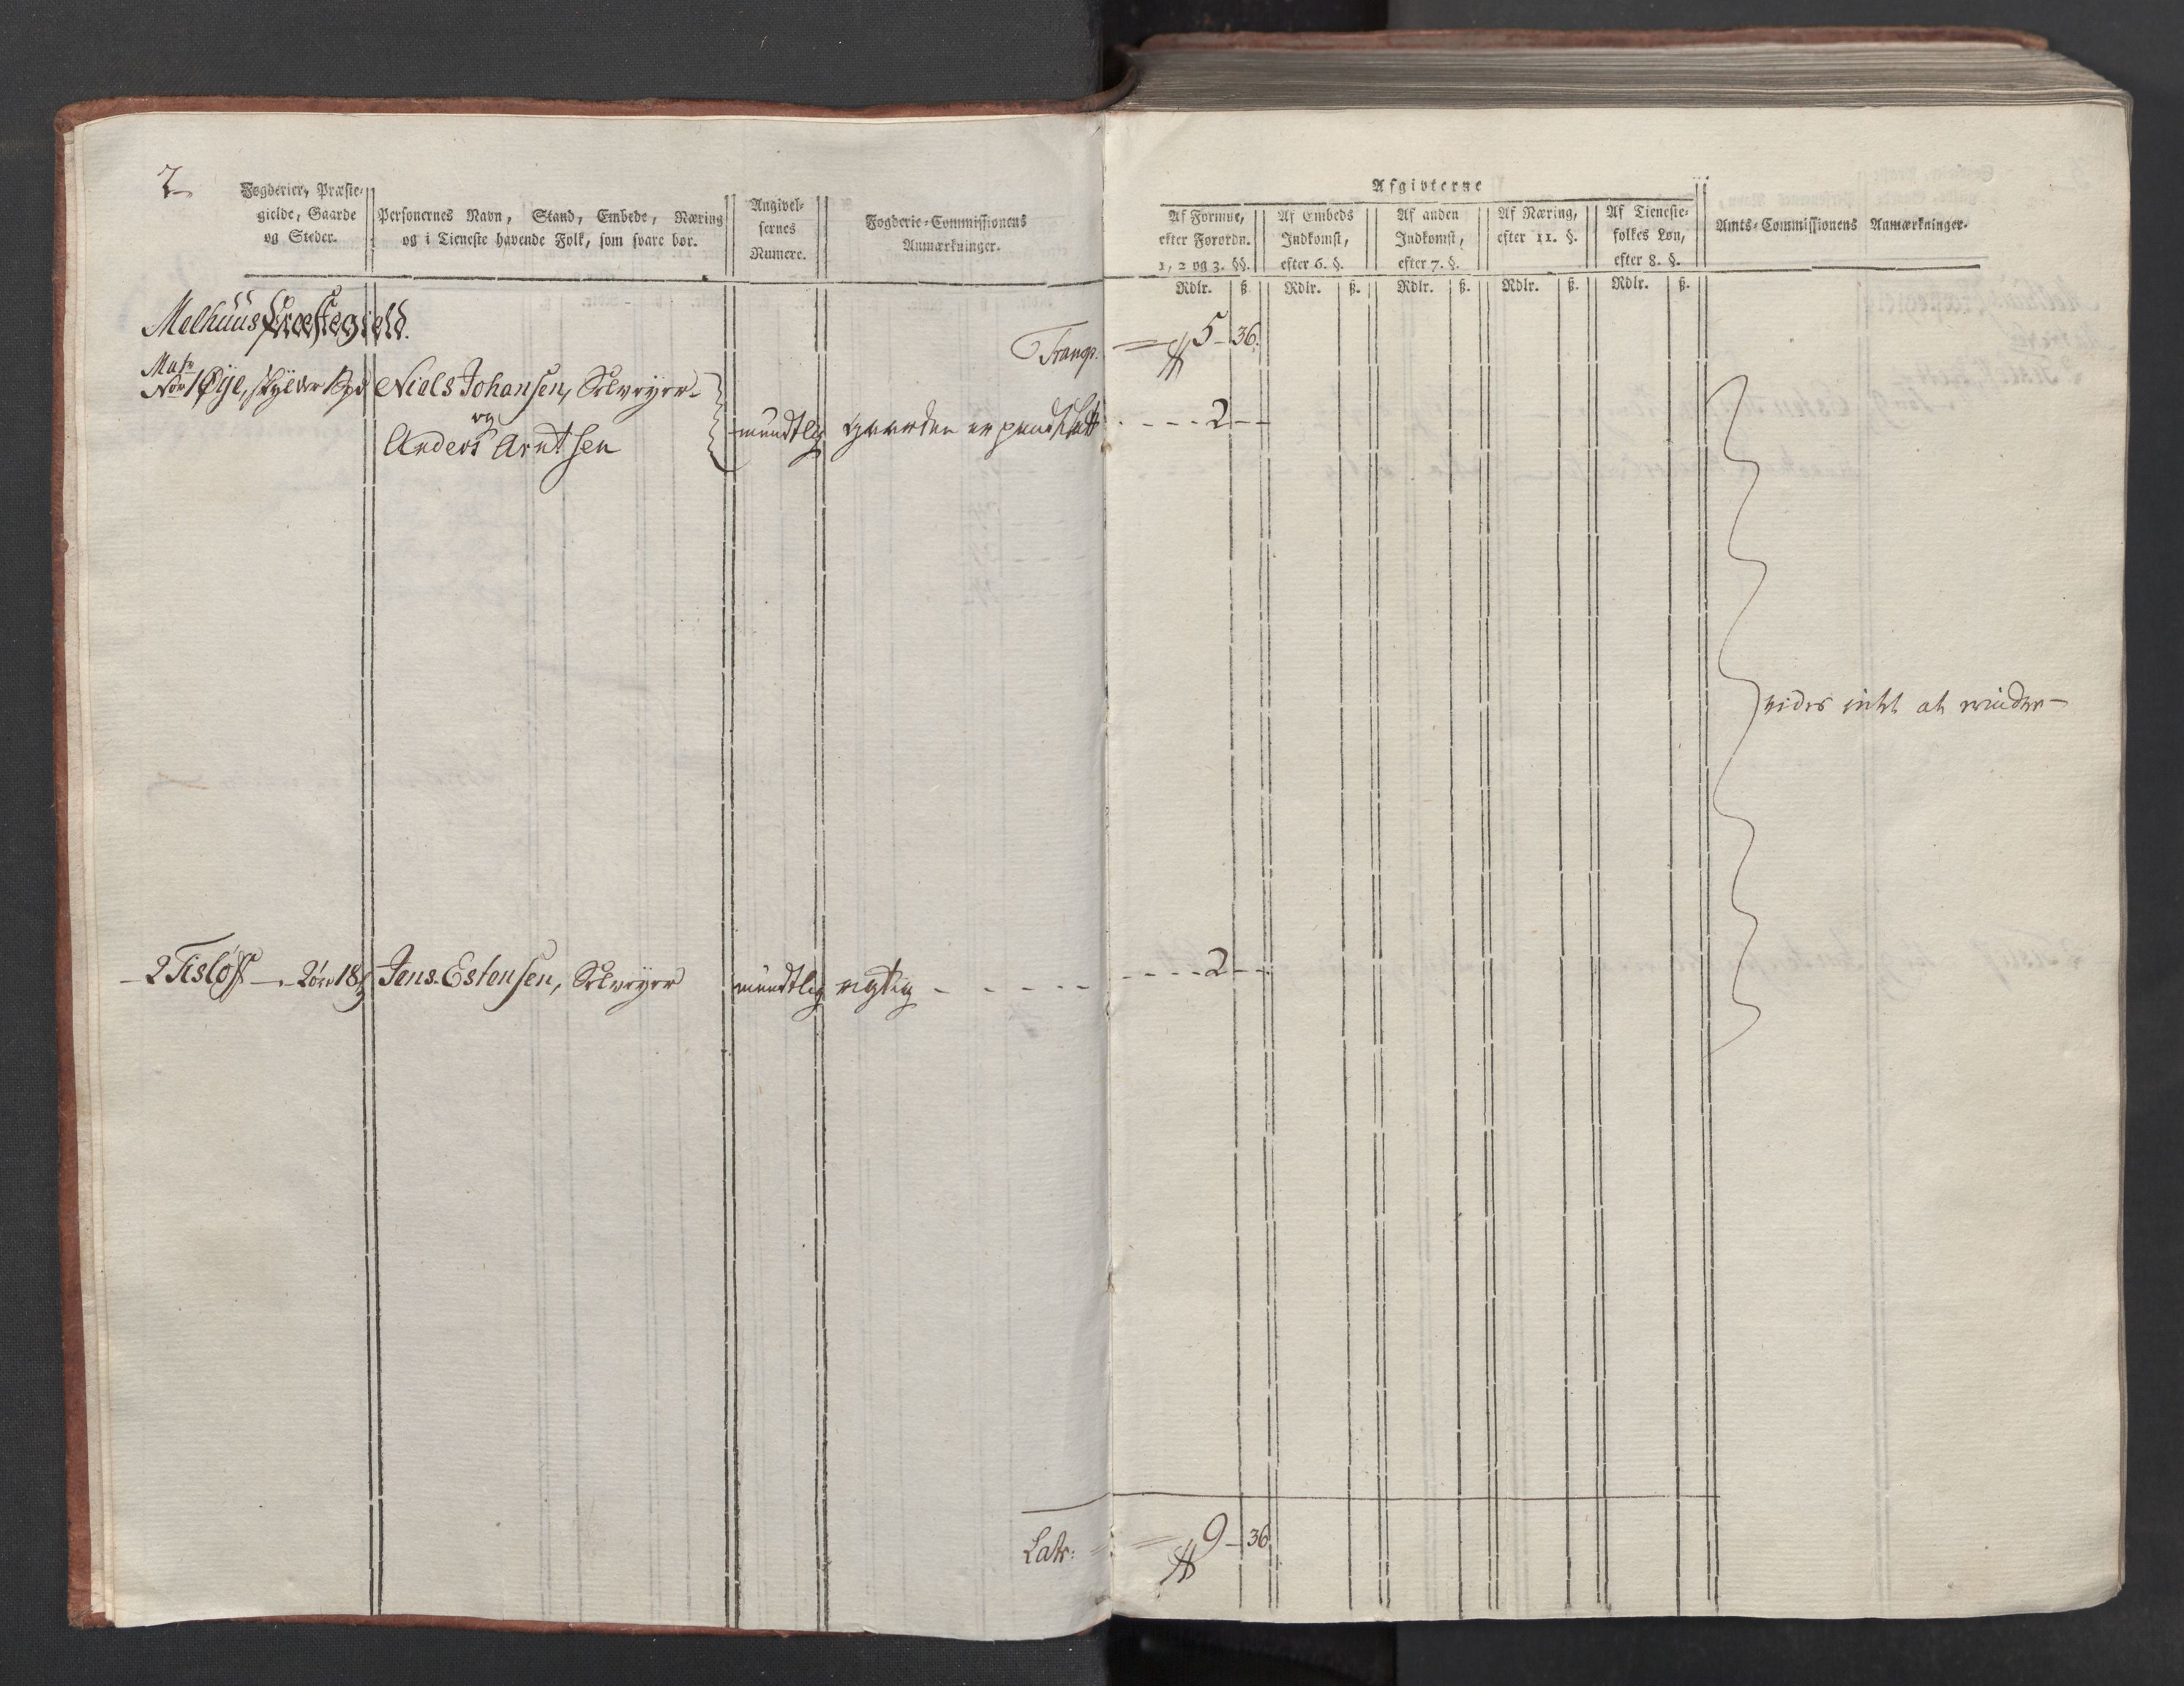 2
Fogderier, Præste-
gielde, Gaarde
og Steder.
Personernes Navn, Stand, Embede, Næring
og i Tieneste havende Folk, som svare bør.
Angivel-
sernes
Numere.
Fogderie-Commissionens
Anmærkninger.
Afgivterne
Af Formue,
efter Forordn.
1, 2 og 3. §§.
Af Embeds
Indkomst,
efter 6. §.
Af anden
Indkomst,
efter 7. §.
Af Næring,
efter 11. §.
Af Tieneste-
folkes Løn,
efter 8. §.
Amts-Commissionens Anmærkninger.
Rdlr. ß. Rdlr. ß. Rdlr. ß. Rdlr. ß. Rdlr. ß.
Melhuus Præstegield.
Transp. 5 - 36.
No 1 Øye, skylder Niels Johansen, Selveyer
og
Anders Arntsen
mundtlig Gaarden er pandsatt - - - - 2 - -
vides intet at erindre -
- 2 Fisløff - 2 Øre 18 Jens Estensen, Selveyer mundtlig rigtig - - - - - - - - - 2 - -
Latr: 9 - 36